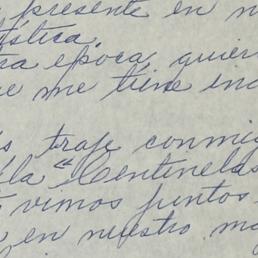 presente en
ística.
época, quier
me tiene in
traje conmig
la "Centinelas
vimos juntos
en nuestro m